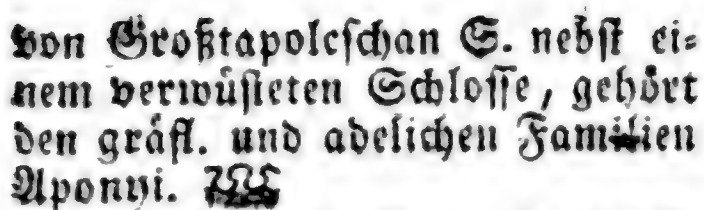 von Großtapolcschan S. nebst ei⸗
nem verwüsteten Schlosse, gehört
den gräfl. und adelichen Familien
Aponyi.